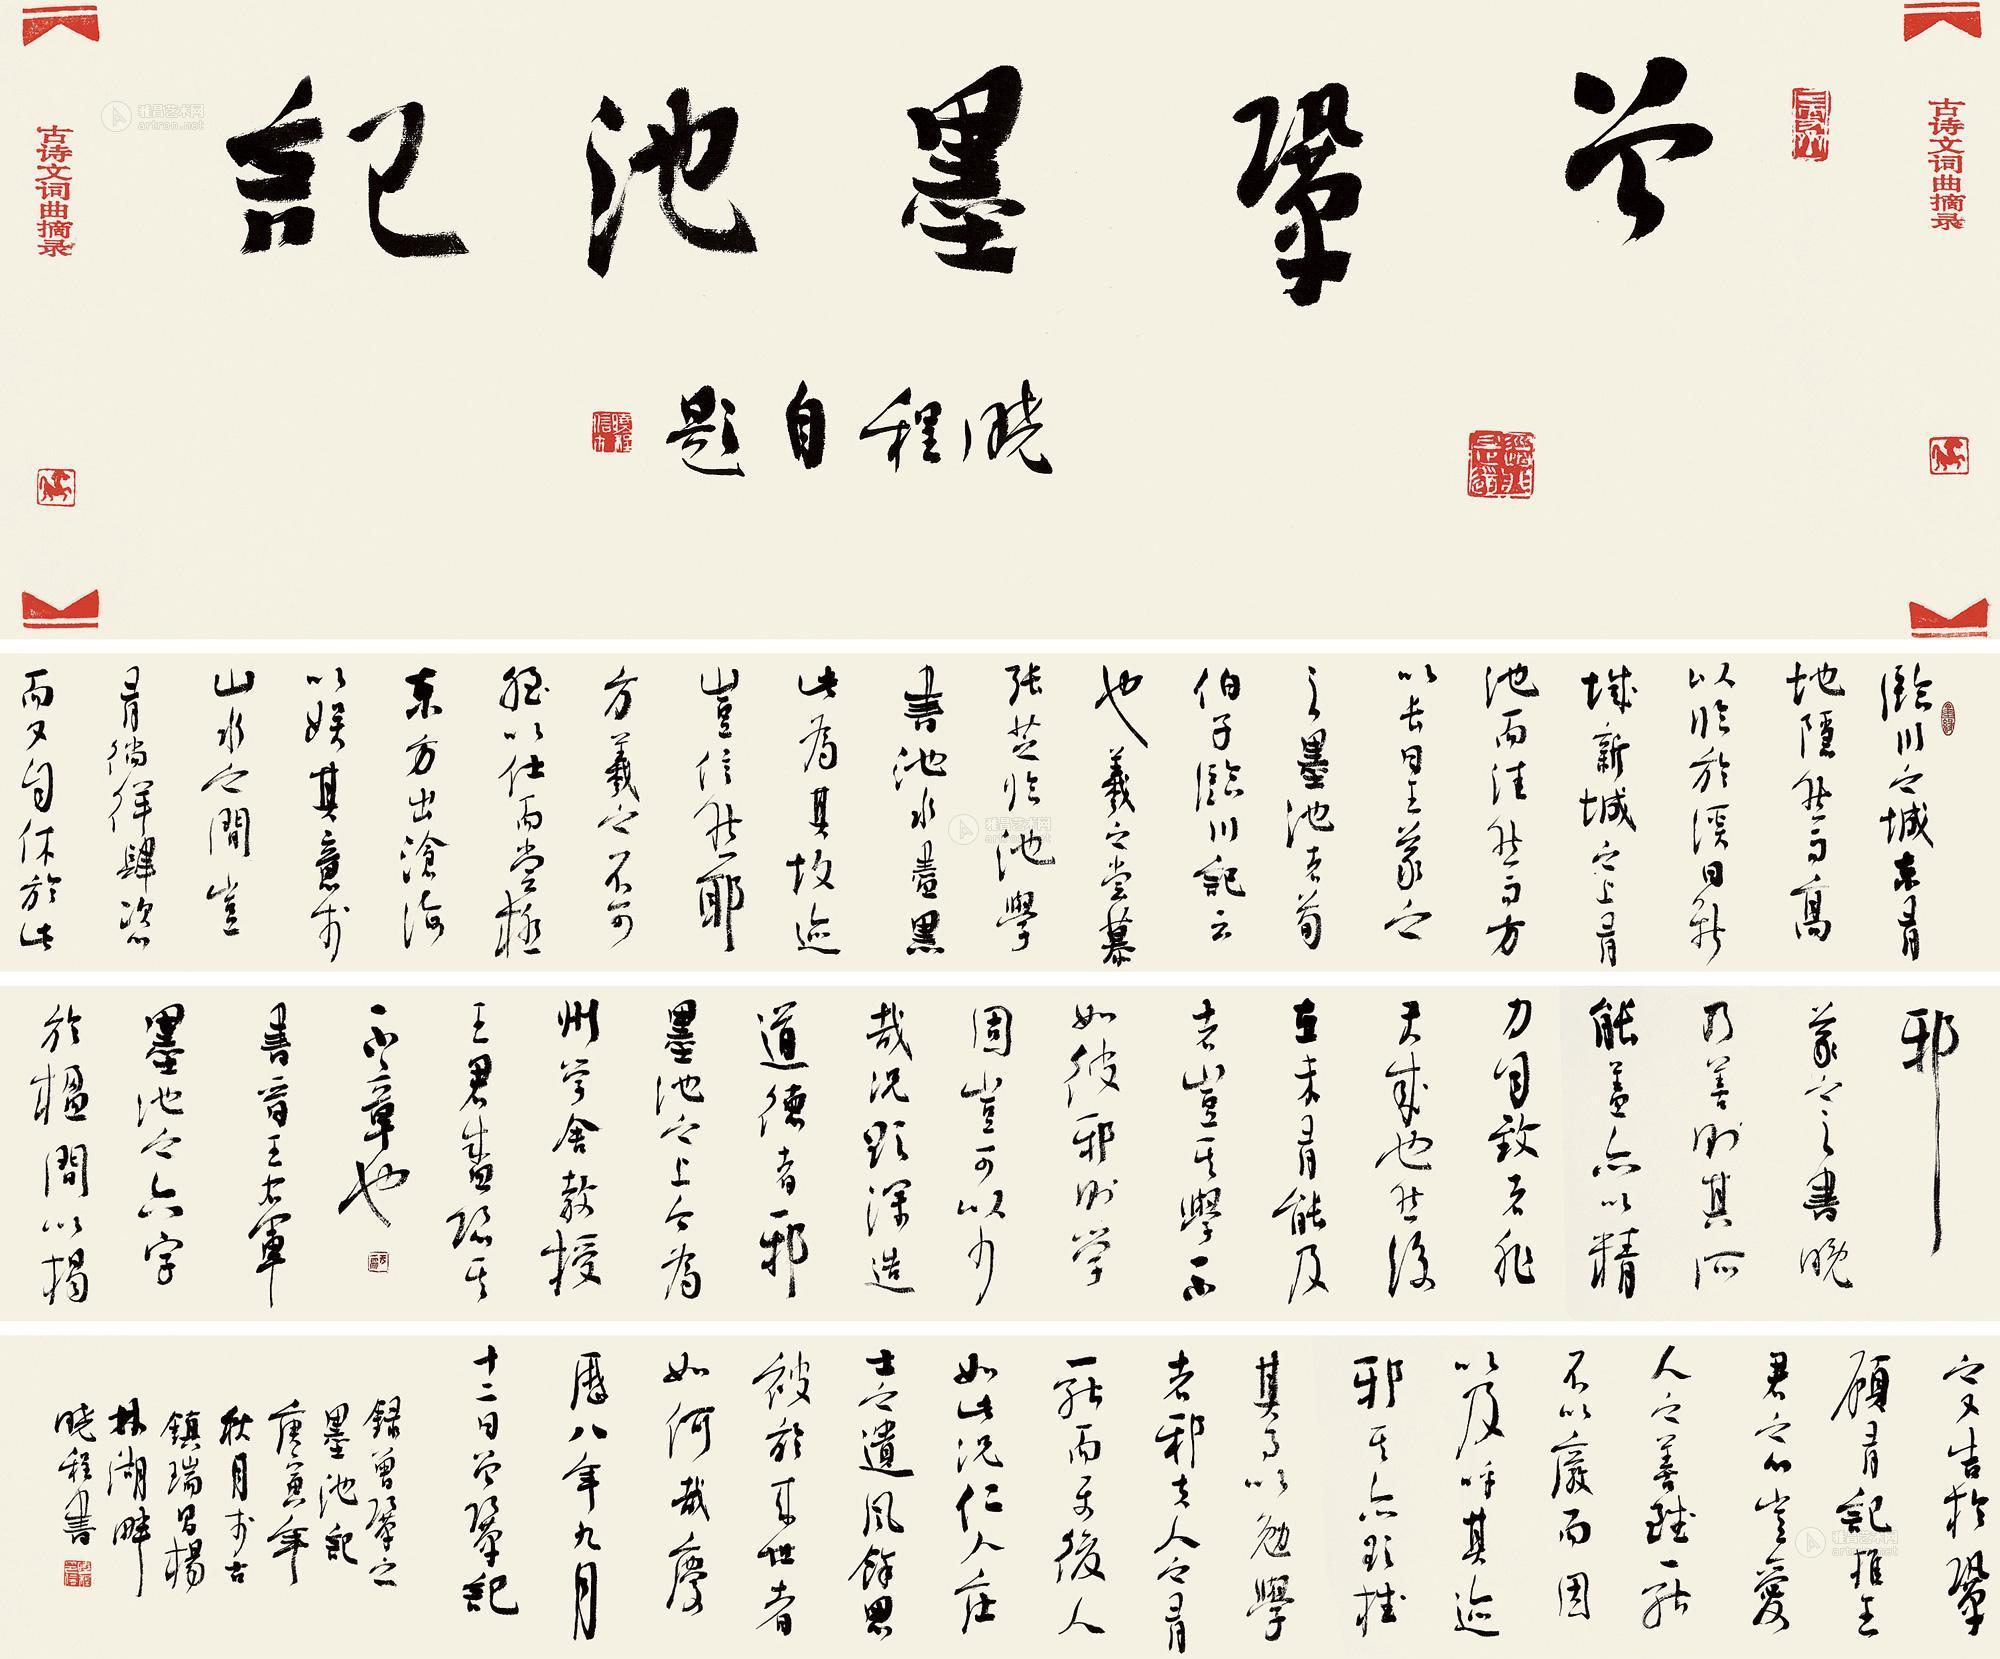 曾鞏墨池記
曉程自題
古诗文词曲摘录
古诗文词曲摘录
雅昌艺术网
artron.net
臨川之城東有
地隱然而高
以臨於溪曰新
城新城之上有
池窪然而方
以長曰王羲之
之墨池者荀
伯子臨川記云
也羲之嘗慕
張芝臨池學
書池水盡黑
此為其故迹
豈信然耶
方羲之不可
強以仕而嘗極
東方出滄海
以娛其意於
山水之間豈
有徜徉肆恣
而又自休於此
雅昌艺术网
artron.net
邪
羲之之書晚
乃善則其所
能蓋亦以精
力自致者非
天成也然後
世未有能及
者豈其學不
如彼邪則學
固豈可以少
哉況欲深造
道德者邪
墨池之上今為
州學舍教授
王君盛恐其
不章也
書晉王右軍
墨池之六字
於楹間以揭
之又告於鞏
願有記推王
君之心豈愛
人之善雖一能
不以廢而因
以及乎其迹
邪其亦欲推
其事以勉學
者邪夫人之有
一能而使後人
如此況仁人莊
士之遺風餘思
被於來世者
如何哉慶
曆八年九月
十二日曾鞏記
錄曾鞏之
墨池記
庚寅年
秋月於古
鎮瑞昌楊
林湖畔
曉程書
雅昌艺术网
artron.net